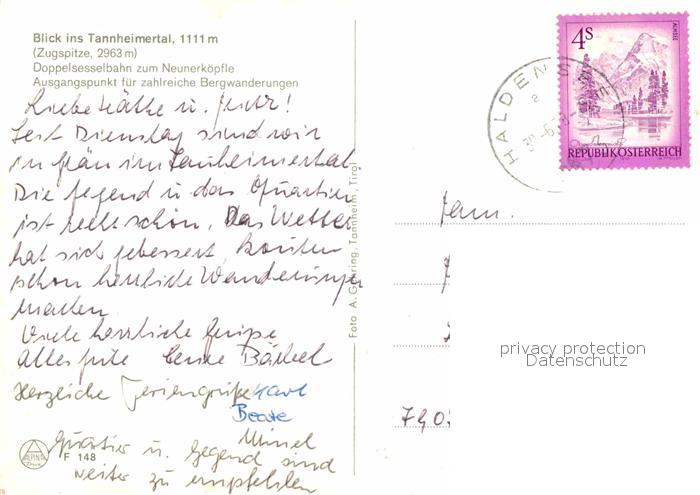 Blick ins Tannheimertal, 1111 m
(Zugspitze, 2963 m)
Doppelsesselbahn zum Neunerköpfle
Ausgangspunkt für zahlreiche Bergwanderungen
Liebe Käthe u.
Seit Dienstag sind wir
in Grän im Tannheimertal
Die Gegend u das Quartier
ist recht schön. Das Wetter
hat sich gebessert, konnten
schon herrliche Wanderungen
machen.
Viele herzliche Grüße
Alles Gute Bärbel
Herzliche Feriengrüße Karl
Beate
Quartier u. Gegend sind
weiter zu empfehlen
ALPINA
F 148
Foto A. Gehring, Tannheim, Tirol
4S
ALMSEE
REPUBLIK ÖSTERREICH
HALDENSEE
a
Fam.
privacy protection
Datenschutz